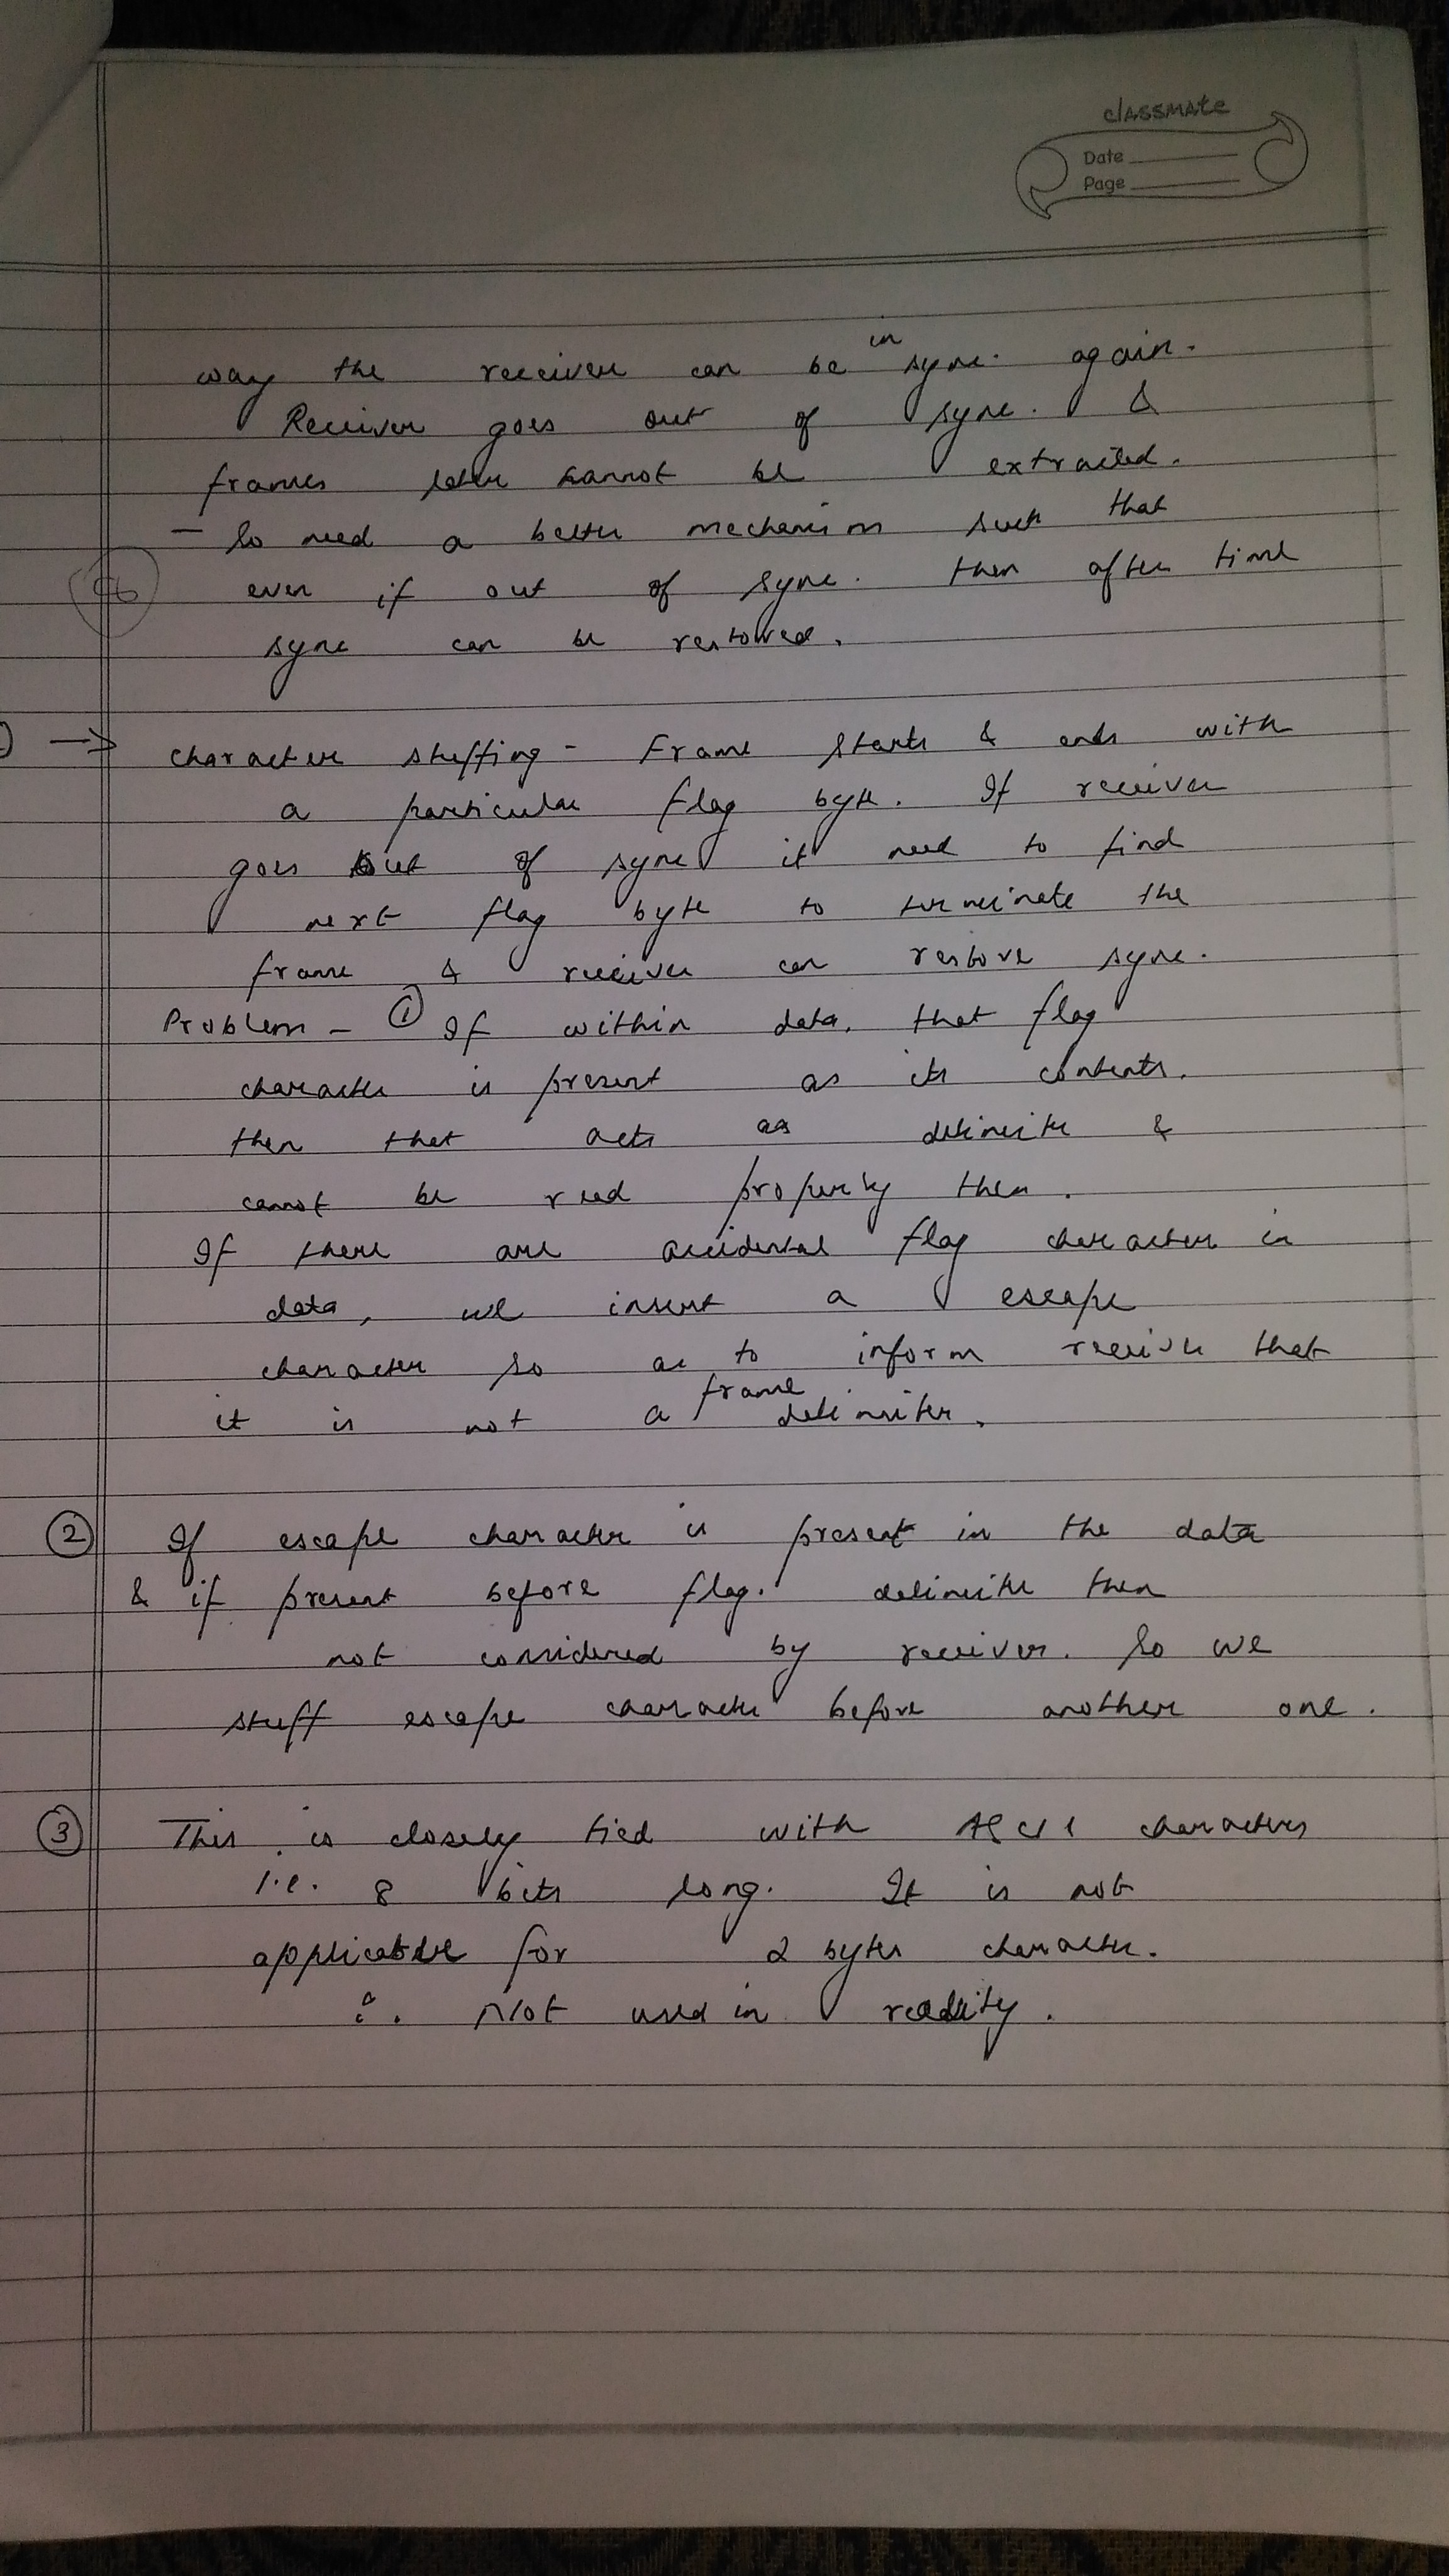 classmate
Date
Page
way the receiver can be in sync. again.
Receiver goes out of sync. &
frames later cannot be extracted.
- So need a better mechanism such that
even if out of sync. then after time
sync can be restored.
→ character stuffing - Frame starts & ends with
a particular flag byte. If receiver
goes out of sync it need to find
next flag byte to terminate the
frame & receiver can restore sync.
Problem - ① If within data, that flag
character is present as its contents.
then that acts as delimiter &
cannot be read properly then.
If there are accidental flag character in
data, we insert a escape
character so as to inform receiver that
it is not a frame delimiter.
② If escape character is present in the data
& if present before flag. delimiter then
not considered by receiver. So we
stuff escape character before another one.
③ This is closely tied with ASCII characters
i.e. 8 bits long. It is not
applicable for 2 bytes character.
∴ Not used in reality.